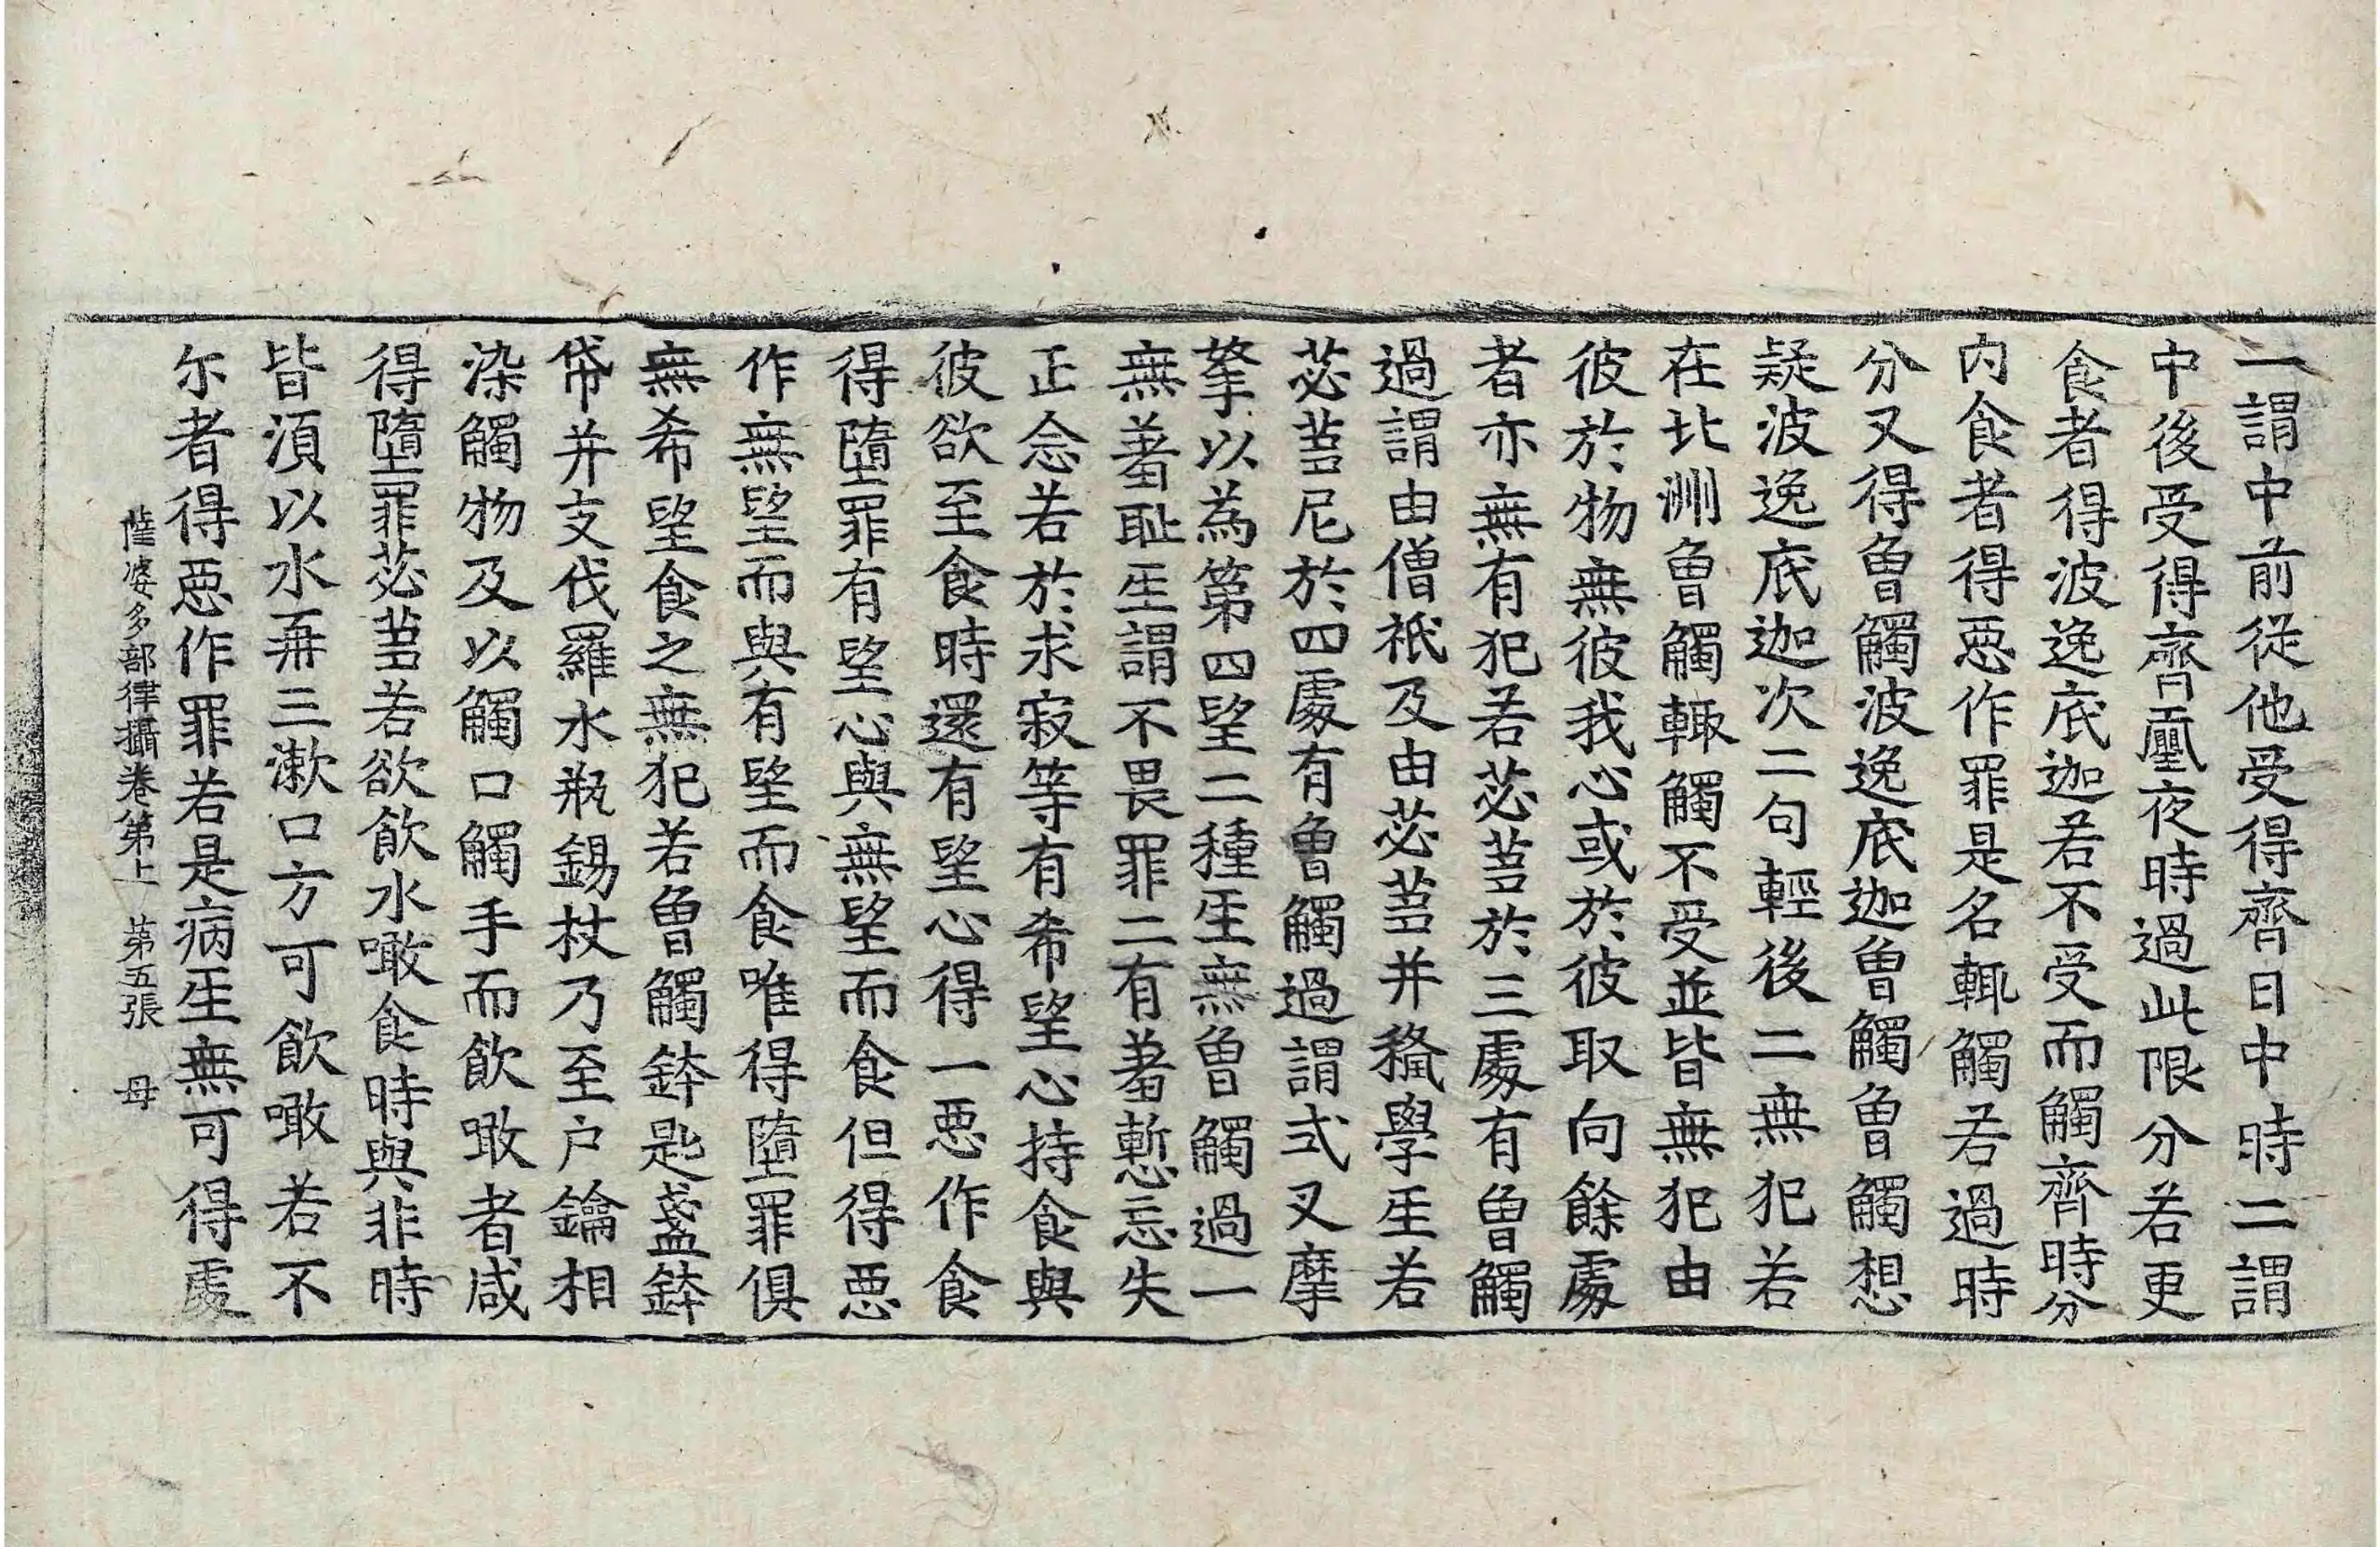 一謂中前從他受得齊日中時二謂
中後受得齊壐夜時過此限分若更
食者得波逸底迦若不受而觸齊時分
內食者得惡作罪是名輒觸若過時
分又得曾觸波逸底迦曾觸曾觸想
疑波逸底迦次二句輕後二無犯若
在北洲曾觸輒觸不受並皆無犯由
彼於物無彼我心或於彼取向餘處
者亦無有犯若苾芻於三處有曾觸
過謂由僧祇及由苾芻并授學人若
苾芻尼於四處有曾觸過謂式叉摩
拏以為第四望二種人無曾觸過一
無羞恥人謂不畏罪二有羞慙忘失
正念若於求寂等有希望心持食與
彼欲至食時還有望心得一惡作食
得墮罪有望心與無望而食但得惡
作無望而與有望而食唯得墮罪俱
無希望食之無犯若曾觸鉢匙盞鉢
帒并支伐羅水瓶錫杖乃至户鑰相
染觸物及以觸口觸手而飲噉者咸
得墮罪苾芻若欲飲水噉食時與非時
皆湏以水再三漱口方可飲噉若不
尒者得惡作罪若是病人無可得處
薩婆多部律攝卷第上 第五張 母